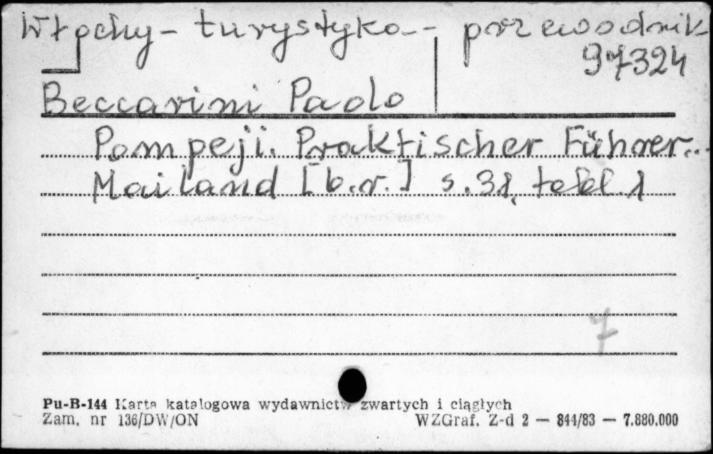 Włochy - turystyka - przewodnik
97324
Beccarini Paolo
Pompeji. Praktischer Führer...
Mailand [b.r.] s. 31, tabl. 1
7
Pu-B-144 Karta katalogowa wydawnictw zwartych i ciągłych
Zam. nr 136/DW/ON WZGraf. Z-d 2 — 844/83 — 7.880.000